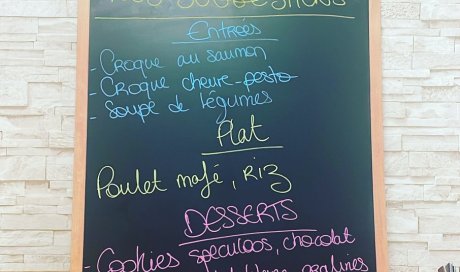 SUGGESTIONS
Entrées
- Croque au saumon
- Croque chèvre-pesto
- Soupe de légumes
Plat
Poulet mafé, Riz
DESSERTS
- Cookies speculoos, chocolat
pralines